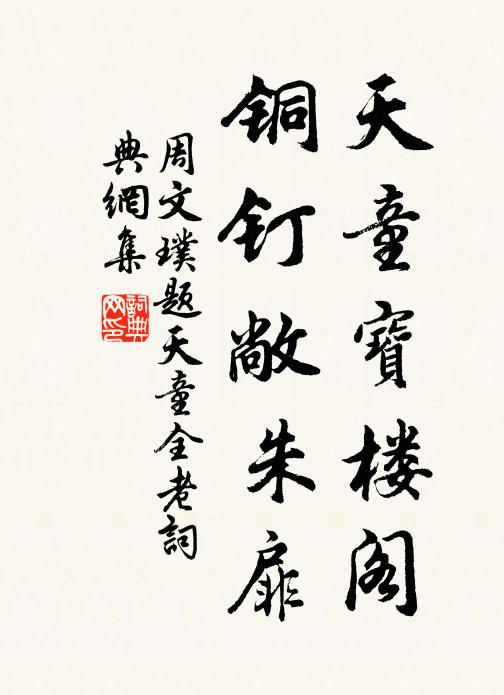 天童寶楼阁
铜钉敞朱扉
周文璞题天童全老詞
典網集
詞典網印